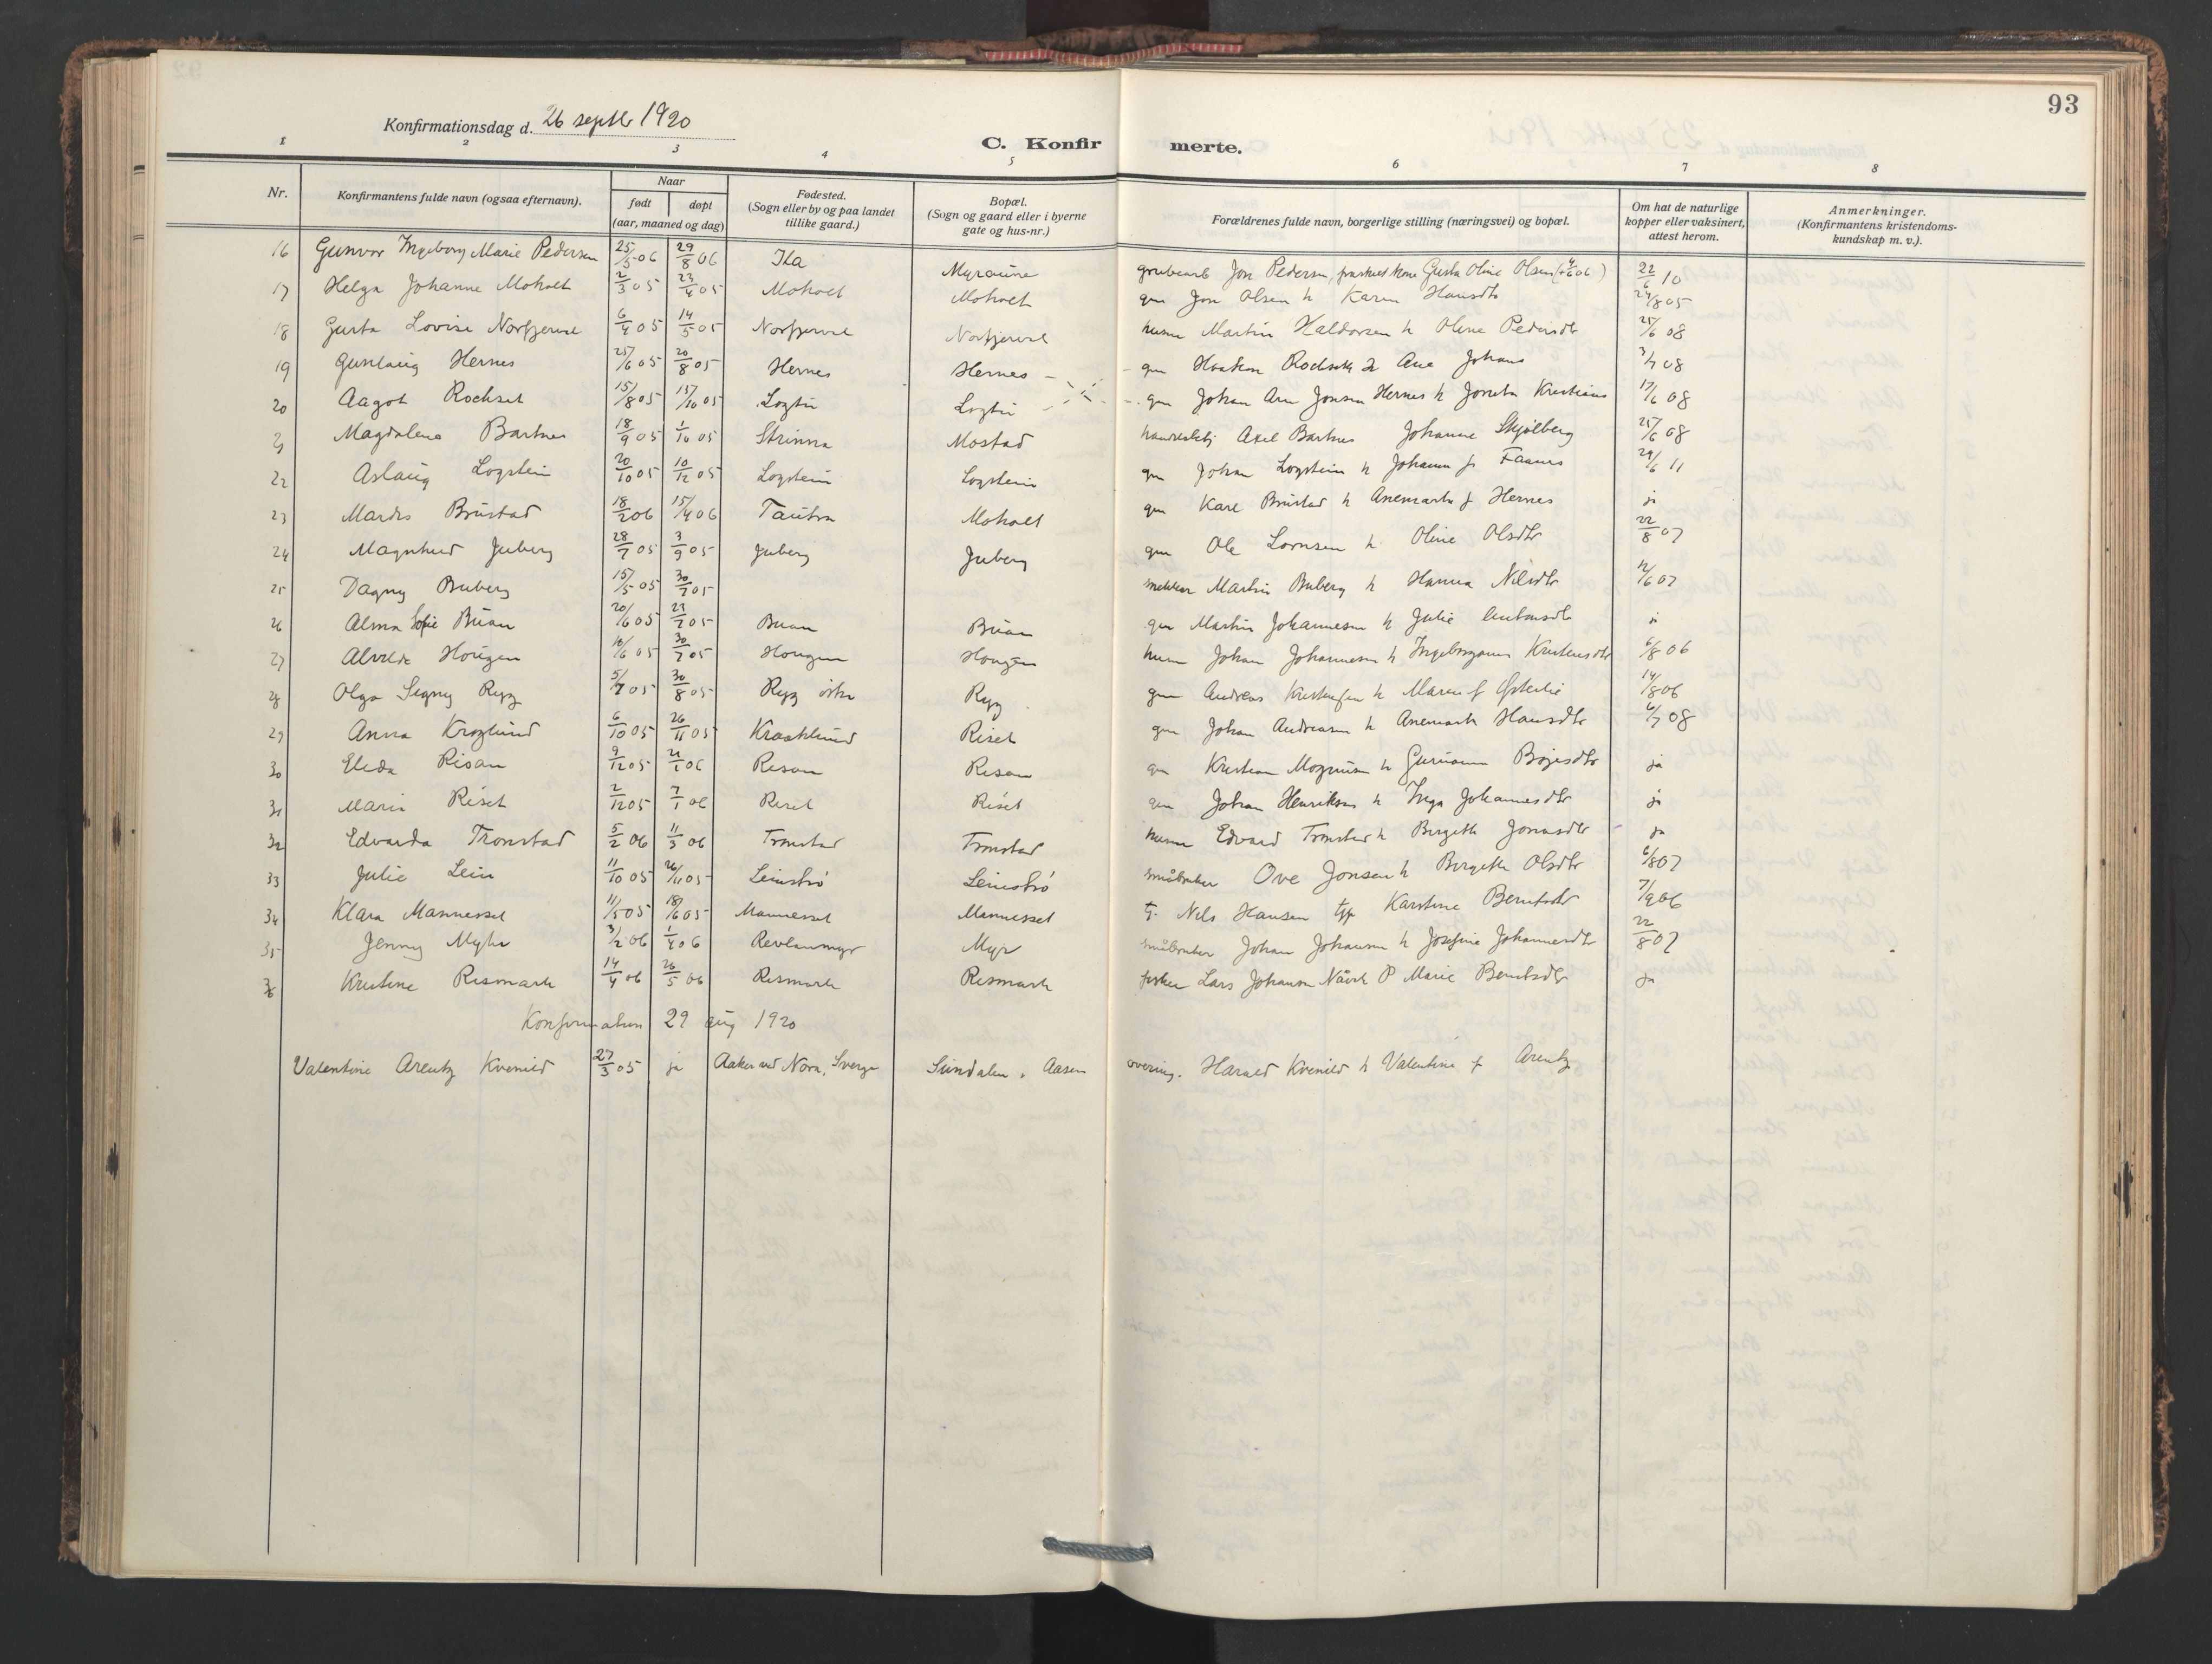 93
Konfirmationsdag d. 26 septbr 1920
C. Konfirmerte.
1 2 3 4 5 6 7 8
Nr. Konfirmantens fulde navn (ogsaa efternavn). Naar født døpt (aar, maaned og dag) Fødested. (Sogn eller by og paa landet tillike gaard.) Bopæl. (Sogn og gaard eller i byerne gate og hus-nr.) Forældrenes fulde navn, borgerlige stilling (næringsvei) og bopæl. Om hat de naturlige kopper eller vaksinert, attest herom. Anmerkninger. (Konfirmantens kristendomskundskap m. v.).
16 Gunvor Ingeborg Marie Pedersen 25/5 06 29/8 06 Ila Myraune grubearb Jon Pedersen, Gusta Oline Olsen 22/6 10
17 Helga Johanne Moholt 2/3 05 23/4 05 Moholt Moholt gm Jon Olsen h Karen Hansdtr 24/8 05
18 Gusta Lovise Norfjerul 6/4 05 14/5 05 Norfjerul Norfjerul Martin Haldorsen h Oline Pedersdtr 25/6 08
19 Gunlaug Hernes 25/6 05 20/8 05 Hernes Hernes gm Haakon h Ane 3/7 08
20 Aagot Rochset 15/8 05 15/10 05 Logtu Logtu gm Johan Arn Jonsen Hernes h Kristians 17/6 08
21 Magdalena Bartnes 18/9 05 1/10 05 Strinna Mostad Axel Bartnes Johanne Skjølberg 25/6 08
22 Aslaug Logstein 20/10 05 10/12 05 Logstein Logstein gm Johan Logstein h Johanna f Faanes 29/6 11
23 Mardis Brustad 18/2 06 15/4 06 Tautra Moholt gm Karl Brustad h Anemarta f Hernes ja
24 Magnhild Juberg 28/7 05 3/9 05 Juberg Juberg gm Ole Lornsen h Oline Olsdtr 22/8 07
25 Dagny Buberg 15/5 05 30/7 05 Martin Buberg h Hanna Nilsdtr 12/6 07
26 Alma Sofie Buan 20/6 05 23/7 05 Buan Buan gm Martin Johannesen h Julie ja
27 Alvilde Hougen 10/6 05 30/7 05 Hougen Hougen Johan Johannesen h Ingeborganna 6/8 06
28 Olga Signy Rygg 5/7 05 30/8 05 Rygg østre Rygg gm Andreas h Maren f Østerlie 14/8 06
29 Anna Kroglund 6/10 05 26/11 05 Kraaklund Riset gm Johan Andreasen h Anemarta Hansdtr 6/7 08
30 Elida Risan 9/12 05 21/1 06 Risan Risan gm Kristian Magnusen h ja
31 Maria Riset 2/12 05 7/1 06 Riset Riset gm Johan Henriksen h Inga Johannesdtr ja
32 Edvarda Tronstad 5/2 06 11/3 06 Tronstad Tronstad Edvard Tronstad h Birgitte Jonasdtr ja
33 Julie Lein 11/10 05 26/11 05 Leinstrø Leinstrø småbruker Ove Jonsen h Birgitte Olsdtr 6/8 07
34 Klara Mannesset 11/5 05 18/6 05 Mannesset Mannesset tj. Nils Hansen Karstine Berntsdtr 7/9 06
35 Jenny Myhr 3/2 06 1/4 06 Revlanmyr Myr småbruker Johan Johansen h Josefine Johannesdtr 22/8 07
36 Kristine Rismark 14/4 06 26/5 06 Rismark Rismark fisker Lars Johansen Nåvik P Marie Berntsdtr ja
Konfirmation 29 aug 1920
Valentine Arentz Kvenild 27/3 05 ja Aaker ved Nora, Sverge Sundalen, Aasen Harald Kvenild h Valentine f Arentz